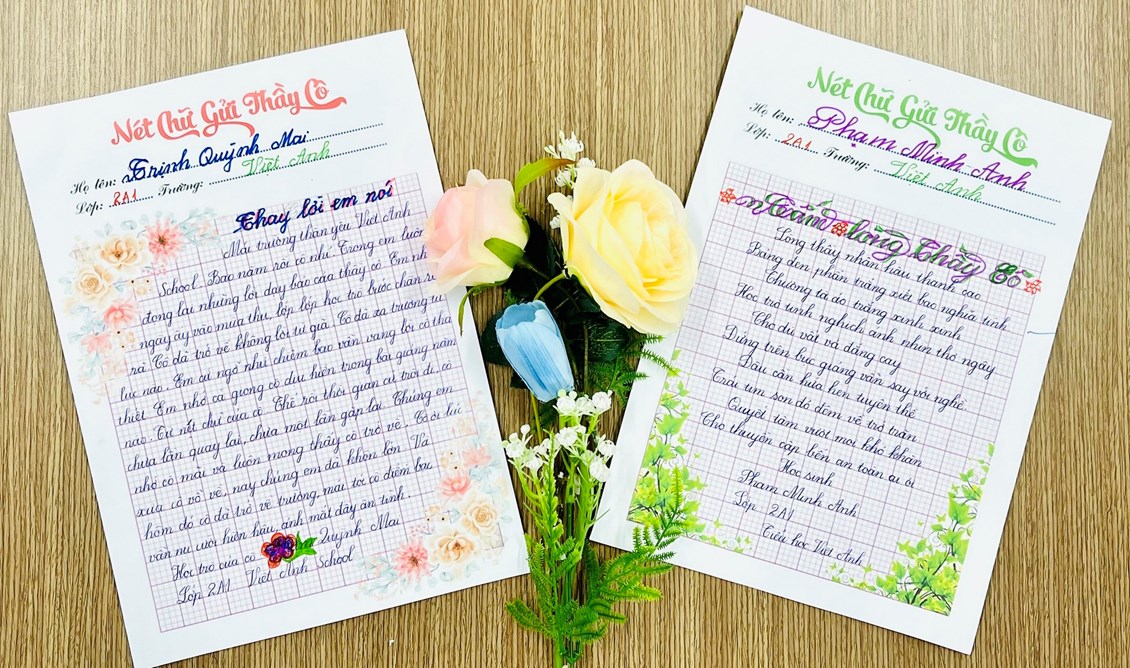 Nét Chữ Gửi Thầy Cô
Họ tên: Trịnh Quỳnh Mai
Lớp: 2A1 Trường: Việt Anh
Thay lời em nói
Mái trường thân yêu Việt Anh
School. Bao năm rồi cô nhỉ. Trong em luôn
đọng lại những lời dạy bảo của thầy cô. Em nhớ
ngày ấy vào mùa thu, lớp lớp học trò bước chân
ra. Cô đã trở về không lời từ giã. Cô đã xa trường
lúc nào. Em cứ ngỡ như chiêm bao văn vang lời cô
thiết. Em nhớ cả giọng cô dịu hiền trong bài giảng năm
nào. Từ nét chữ của cô. Thế rồi thời gian cứ trôi đi, cô
chưa lần quay lại, chưa một lần gặp lại. Chúng em
nhớ cô mãi và luôn mong thầy cô trở về. Cô ơi lúc
xưa cô vỗ về, nay chúng em đã khôn lớn. Và
hôm đó cô đã trở về trường, mái tóc cô điểm bạc
vẫn nụ cười hiền hậu, ánh mắt đầy ân tình.
Học trò của cô Quỳnh Mai
Lớp 2A1 Việt Anh School
Nét Chữ Gửi Thầy Cô
Họ tên: Phạm Minh Anh
Lớp: 2A1 Trường: Việt Anh
Tấm lòng Thầy Cô
Lòng thầy nhân hậu thanh cao
Bảng đen phấn trắng xiết bao nghĩa tình
Chúng ta áo trắng xinh xinh
Học trò tinh nghịch ánh nhìn thơ ngây
Cho dù vất vả đắng cay
Đứng trên bục giảng vẫn say với nghề
Dẫu cần hứa hẹn tuyên thề
Trái tim son đỏ đêm về trở trăn
Quyết tâm vượt mọi khó khăn
Cho thuyền cập bến an toàn ai ơi
Học sinh
Phạm Minh Anh
Lớp 2A1
Tiểu học Việt Anh